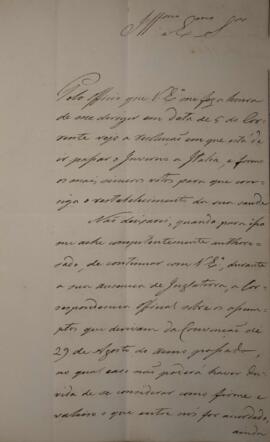 Illmo e Exmo Snr
Pelo Officio que V Ex.ª me fez a honra
de me dirigir em data de 5 do Cor-
rente vejo a resolução em que está de
ir passar o Inverno a Italia, e formo
os mais sinceros votos para que con-
siga o restabelecimento da sua saude
Não deixarei, quando para isso
me ache competentemente authori-
sado, de continuar com V Ex.ª, durante
a sua ausencia de Inglaterra, a Cor-
respondencia official sobre os assump-
tos que derivam da Convenção de
29 de Agosto do anno passado,
no qual caso não poderá haver du-
vida de se considerar como firme e
valioso o que entre nós for acordado,
ainda